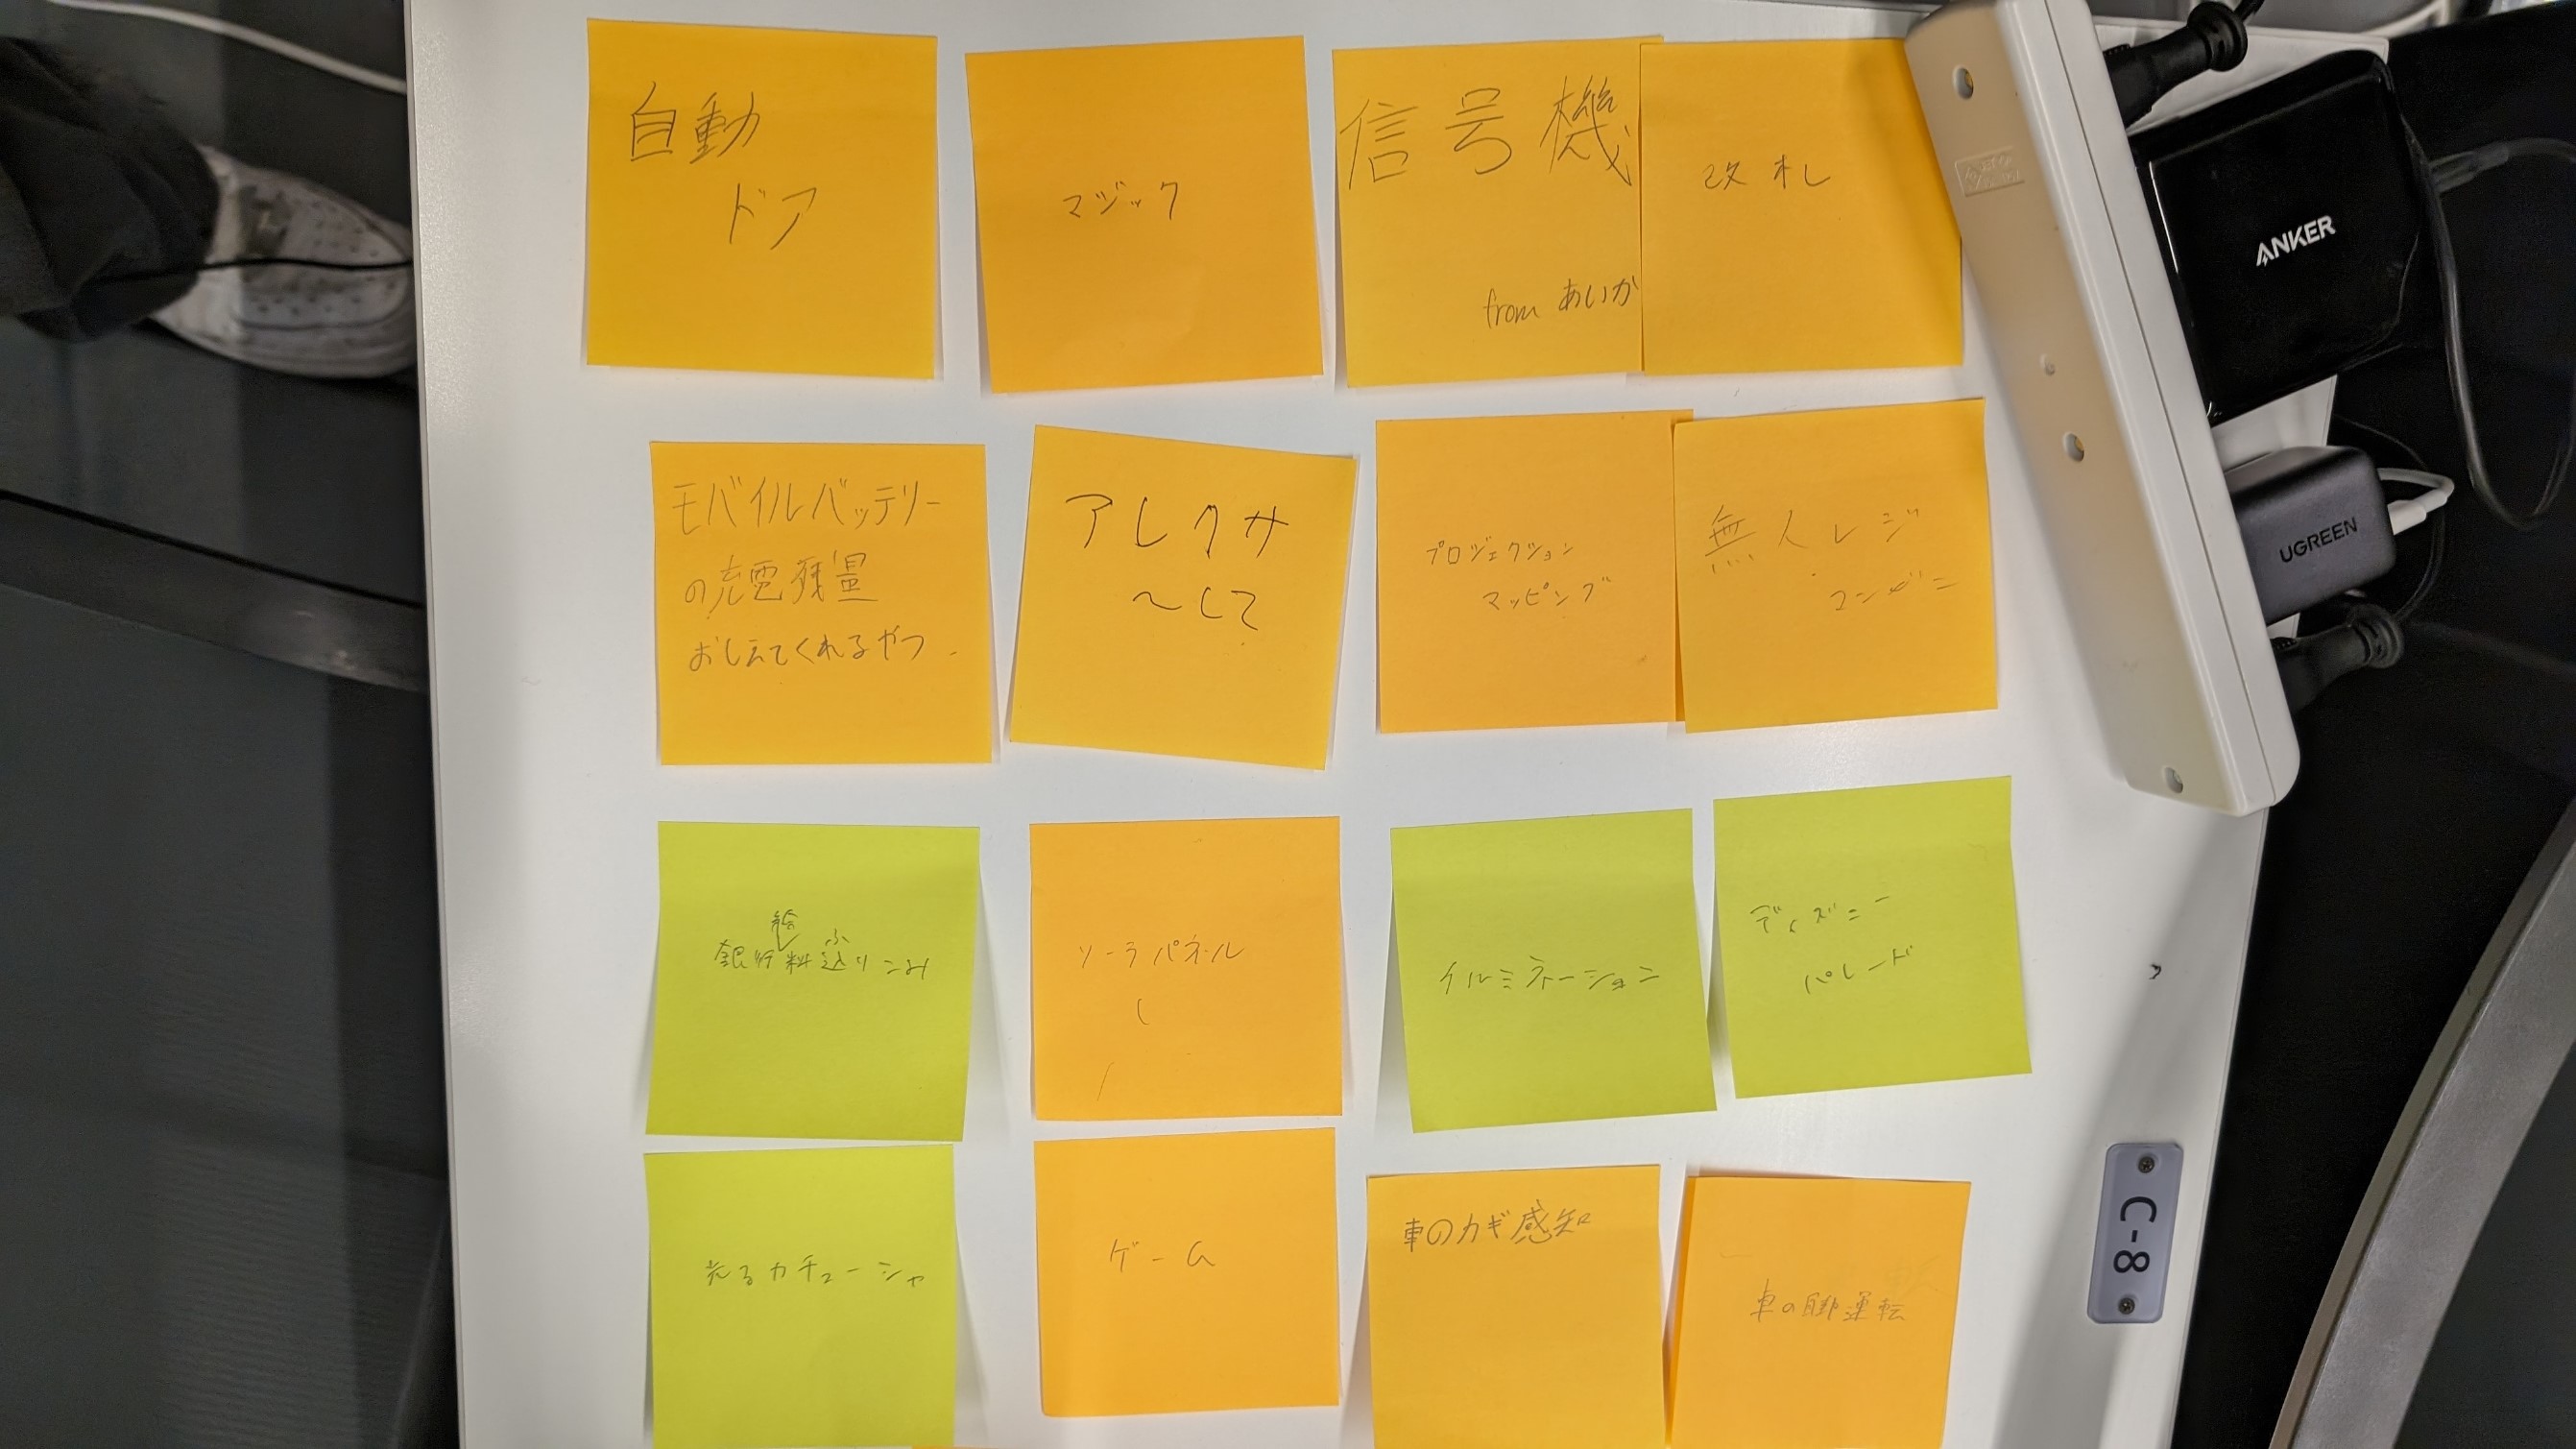 自動
ドア
マジック
信号機
from あいか
改札
モバイルバッテリー
の充電残量
おしえてくれるやつ.
アレクサ
〜して
プロジェクション
マッピング
無人レジ
コンビニ
給
ふ
銀行料込りこみ
ソーラパネル
イルミネーション
ディズニー
パレード
光るカチューシャ
ゲーム
車のカギ感知
車の
運転
ANKER
UGREEN
C-8